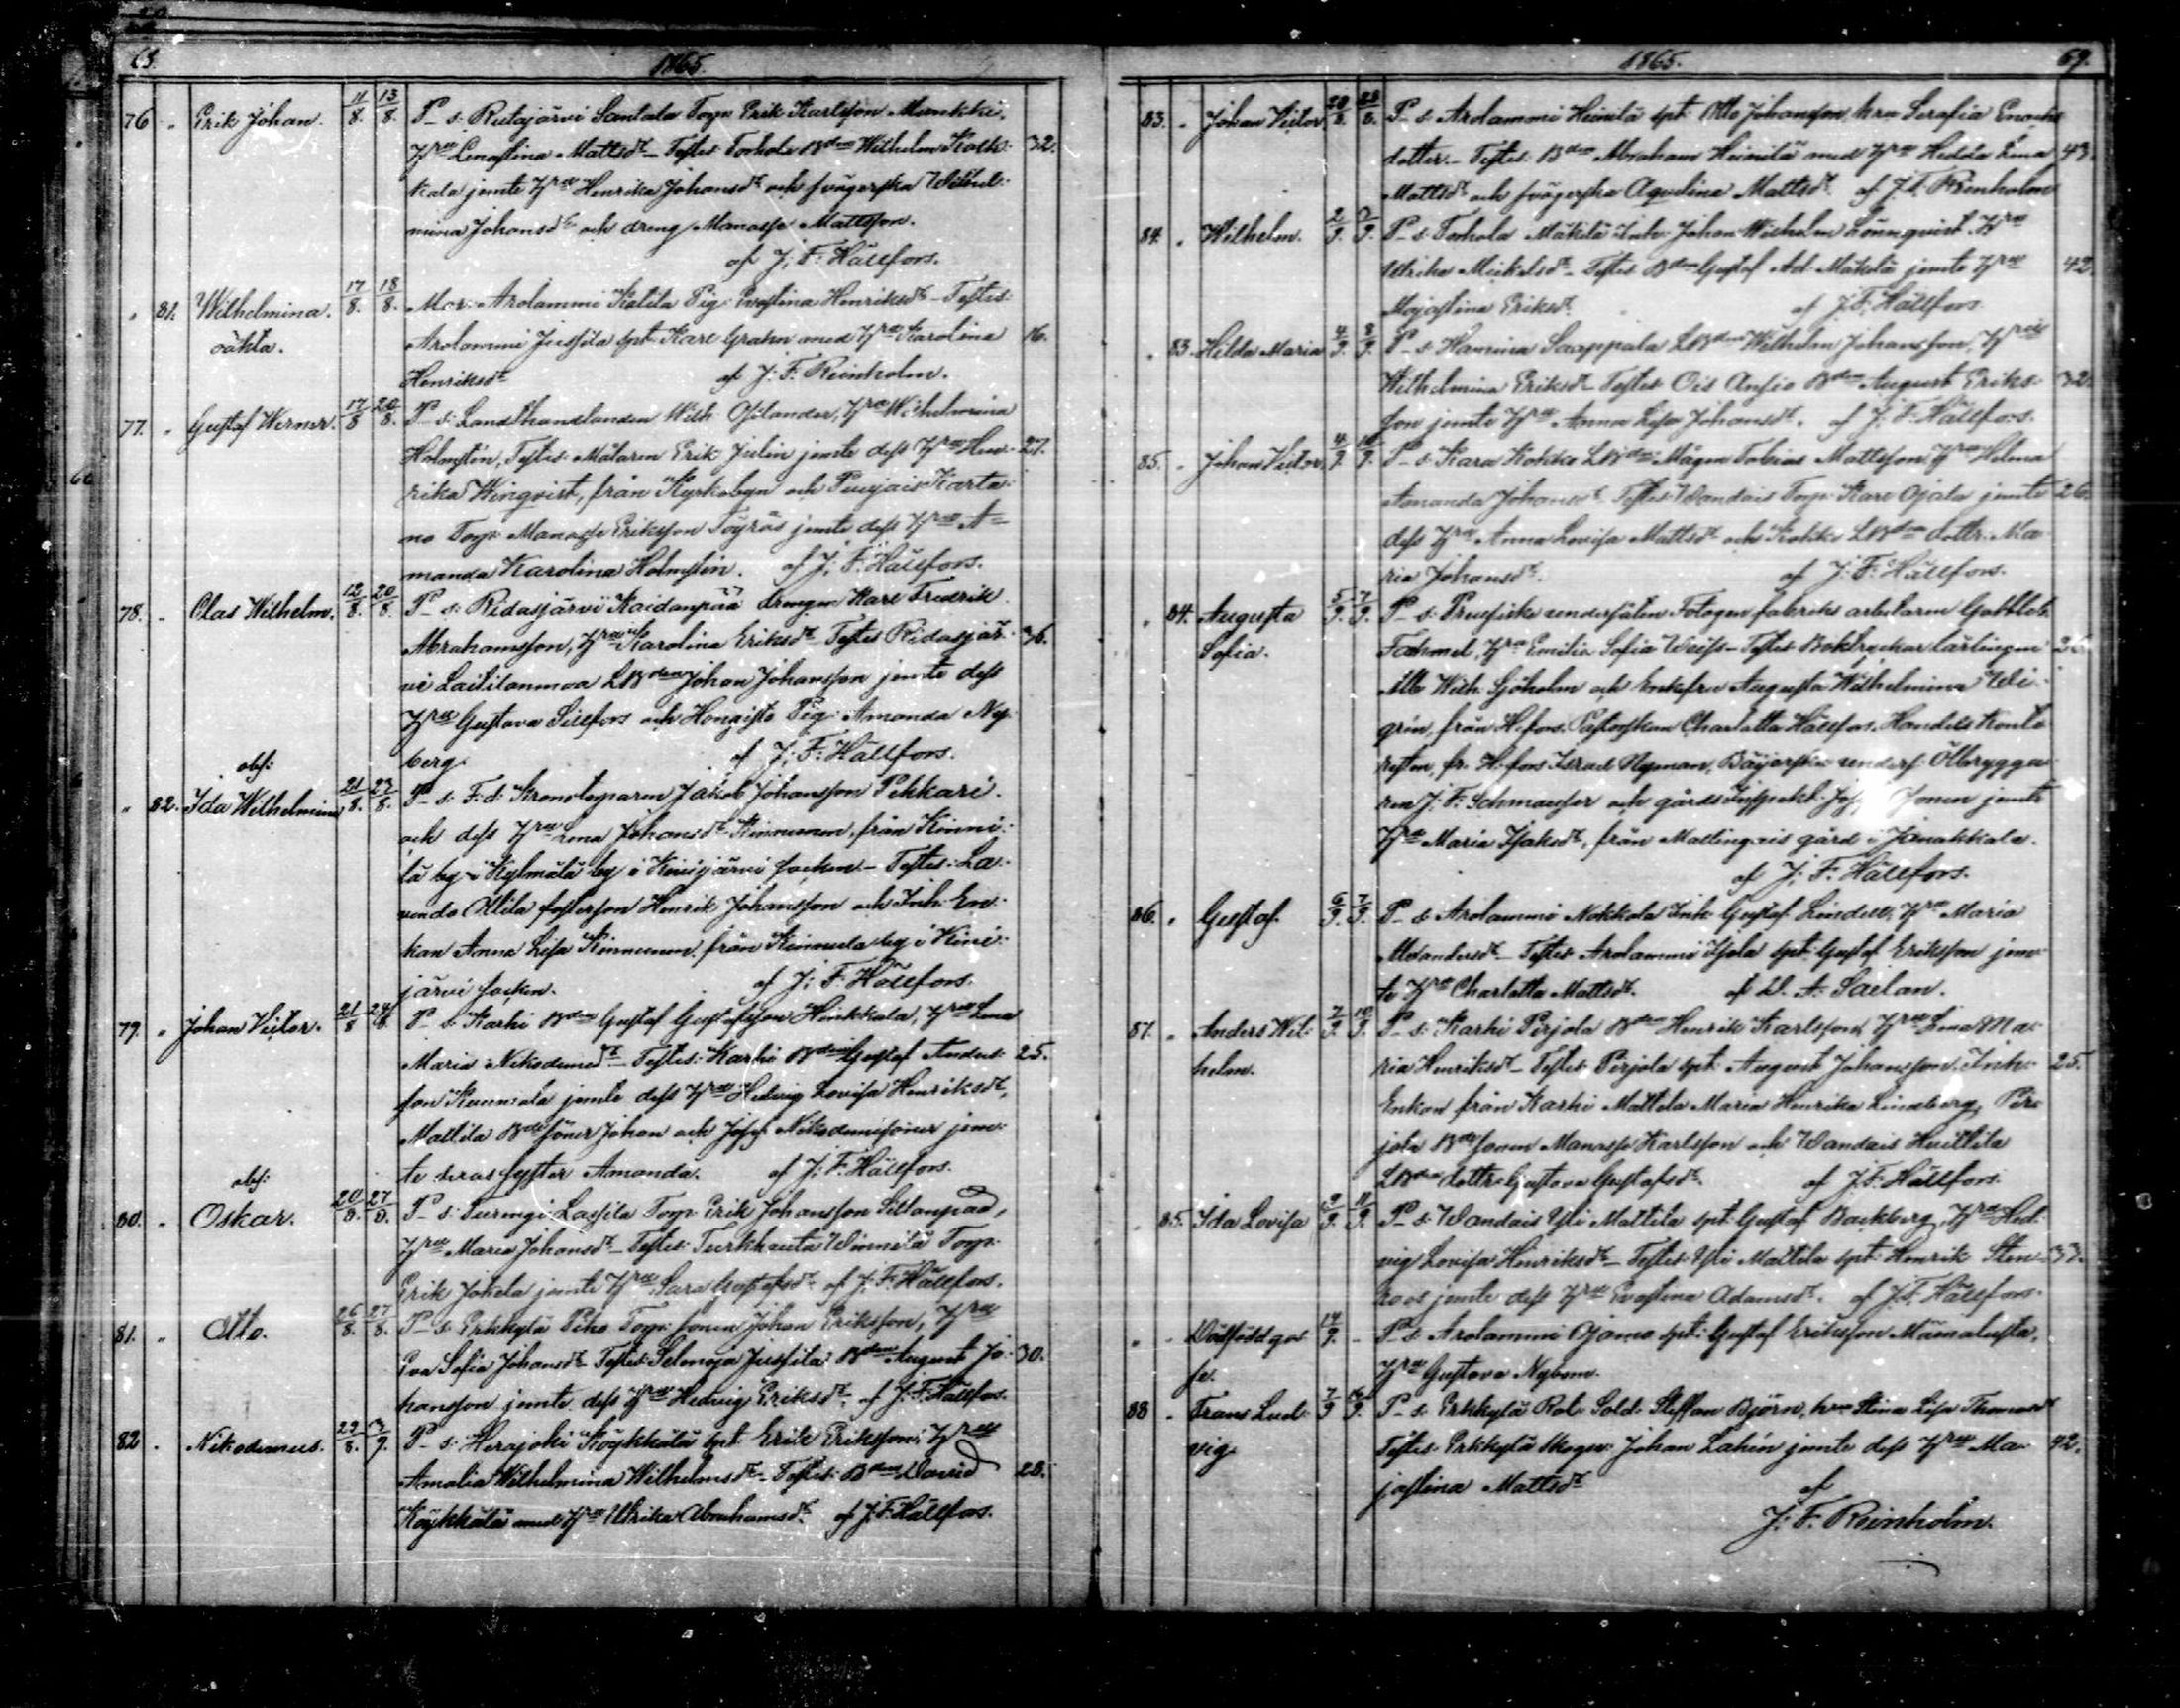 1865.
76 Erik Johan. 11/8. 13/8. P. s. Ridasjärvi Santala Torp. Erik Karlsson Munkki,
Hru Lenastina Mattsdr – Testes: Torhola Bden Wilhelm Kosk- 32.
kala jemte Hru Henrika Johansdr och svägerska Wilhel-
mina Johansdr och dreng Manasse Mattsson.
af J. F. Hällfors.
81. Wilhelmina. 17/8. 18/8. Mor: Arolammi Katila Pig. Evastina Henriksdr – Testes:
oäkta. Arolammi Jussila spt. Karl Grahn med Hru Karolina 16.
Henriksdr af J. F. Reinholm.
77. Gustaf Werner. 17/8 20/8. P. s. Landthandlanden Wilh. Osilander, Hru Wilhelmina
Holmstén, Testes: Målaren Erik Julin jemte dess Hru Hen- 27.
rika Winqvist, från Kyrkobyn och Puujais Karta-
no Torp. Manasse Eriksson Töyräs jemte dess Hru A-
manda Karolina Holmstén. af J. F. Hällfors.
78. Clas Wilhelm. 12/8. 20/8. P. s. Ridasjärvi Kaidanpää drengen Karl Fredrik
Abrahamsson, Hru Karolina Eriksdr Testes Ridasjär- 36.
vi Lailitanmaa LBden Johan Johansson jemte dess
Hru Gustava Sillfors och Hongisto Pig. Amanda Ny-
berg. af J. F. Hällfors.
obs:
82. Ida Wilhelmina 21/8. 23/8. P. s. F. d. Kronotorparen Jakob Johansson Pekkari
och dess Hru Lena Johansdr Kinnunen, från Kinni-
lä by i Kylmälä by i Kivijärvi socken – Testes: La-
vindo Ollila fosterson Henrik Johansson och Inh. En-
kan Anna Lisa Kinnunen från Kinnula by i Kivi-
järvi socken. af J. F. Hällfors.
79. Johan Victor. 21/8 24/8. P. s. Karhi Bden Gustaf Gustafsson Heikkala, Hru Lena
Maria Nikodemidr – Testes: Karhi Bden Gustaf Anders- 25.
son Kunnala jemte dess Hru Hedvig Lovisa Henriksdr,
Mattila Bdesöner Johan och Josef Nikodemisöner jem-
te deras syster Amanda. af J. F. Hällfors.
obs:
80. Oskar. 20/8. 27/8. P. s. Turengi Lassila Torp. Erik Johansson Siltanpää,
Hru Maria Johansdr – Testes: Turkhauta Winnilä Torp.
Erik Jokela jemte Hru Sara Gustafsdr af J. F. Hällfors.
81. Otto. 26/8. 27/8. P. s. Erkkylä Piho Torp. sonen Johan Eriksson, Hru
Eva Sofia Johansdr Testes: Selenoja Jussila Bden August Jo- 30.
hansson jemte dess Hru Hedvig Eriksdr. af J. F. Hällfors.
82. Nikodemus. 29/8. 3/9. P. s. Herajoki Köykkälä spt. Erik Eriksson, Hru
Amalia Wilhelmina Wilhelmsdr – Testes: Bden David 28.
Köykkälä med Hru Ulrika Abrahamsdr. af J. F. Hällfors.
1865. 69.
83. Johan Victor P. s. Arolammi Heinilä spt. Otto Johansson, hru Serafia Enochs-
dotter. – Testes: Bden Abraham Heinilä med Hru Hedda Lena 43.
Mattsdr och svägerska Aqvelina Mattsdr. af J. F. Reinholm
84. Wilhelm. 2/9. P. s. Torhola Mäkilä Inh. Johan Wilhelm Lönnqvist, Hru
Ulrika Mickelsdr – Testes Bden Gustaf Ad. Mäkilä jemte Hru 42
Majastina Eriksdr. af J. F. Hällfors
83. Hilda Maria 4/9. 8/9. P. s. Hamina Saappala LBden Wilhelm Johansson, Hru
Wilhelmina Eriksdr – Testes Ois Ansio Bden August Eriks- 32.
son jemte Hru Anna Lisa Johansdr. af J. F. Hällfors.
85. Johan Victor 4/9. 10/9. P. s. Kara Kokko LBden Mågen Tobias Mattsson, Hru Helena
Amanda Johansdr Testes: Wandais Torp. Karl Ojala jemte 26.
dess Hru Anna Lovisa Mattsdr och Kokko LBden dottr. Ma-
ria Johansdr. af J. F. Hällfors.
84. Augusta 5/9. 7/9. P. s. Preussiske undersåten Fotogen fabriks arbetaren Gottlieb
Sofia. Fahmel, Hru Emilia Sofia Weiss – Testes Boktryckar lärlingen
Alb. Wilh. Sjöholm och Enkefru Augusta Wilhelmina Wi-
grén, från H.fors. Pastorskan Charlotta Hällfors. Handels Konto-
risten, fr. H.fors Israel Nyman, Bayerske unders. Ölbrygga-
ren J. F. Schmausser och gårds Inspekt. Jonen jemte
Hru Maria Isaksdr, från Mallinqvis gård i Janakkala.
af J. F. Hällfors.
86. Gustaf. 6/9. 7/9. P. s. Arolammi Nokkala Inh. Gustaf Lindell, Hru Maria
Alexandersdr – Testes Arolammi Isola spt. Gustaf Eriksson jem-
te Hru Charlotta Mattsdr. af D. A. Saelan.
87. Anders Wil- 7/9. 10/9. P. s. Karhi Pirjola Bden Henrik Karlsson, Hru Lena Ma-
helm. ria Henriksdr – Testes Pirjola spt. August Johansson, Inh. 25.
Enkan från Karhi Mattila Maria Henrika Lindberg, Pir-
jola Bdesonen Manasse Karlsson och Wandais Huittila
LBden dottr. Gustava Gustafsdr. af J. F. Hällfors.
85. Ida Lovisa 9/9. 11/9. P. s. Wandais Yli Mattila spt. Gustaf Backberg, Hru Hed-
vig Lovisa Henriksdr – Testes: Yli Mattila spt. Henrik Sten- 33.
roos jemte dess Hru Evastina Adamsdr. af J. F. Hällfors.
Dödfödd gos- 14/9. – P. s. Arolammi Ojamo spt. Gustaf Eriksson Mämalusta,
se. Hru Gustava Nybom.
88 Frans Lud- 7/9 16/9. P. s. Erkkylä Rot. Sold. Staffan Björn, hru Stina Lisa Thomasdr
vig. Testes: Erkkylä Skogv. Johan Lahén jemte dess Hru Ma- 42.
jastina Mattsdr af
J. F. Reinholm.